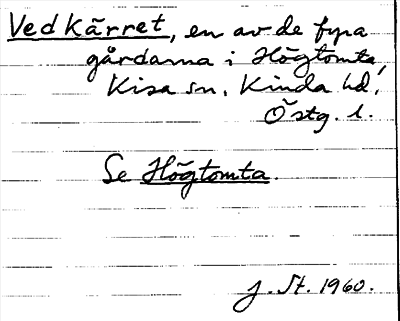 Ved Kärret, en av de fyra
gårdarna i Högtomta,
Kisa sn, Kinda hd,
Östg. l.
Se Högtomta.
J. St. 1960.